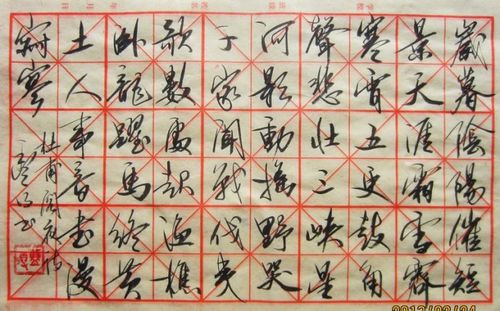 歲暮陰陽催短
景天涯霜雪霽
寒宵五更鼓角
聲悲壯三峽星
河影動搖野哭
千家聞戰伐夷
歌數處起漁樵
卧龍躍馬終黄
土人事音書漫
寂寥
杜甫閣夜詩